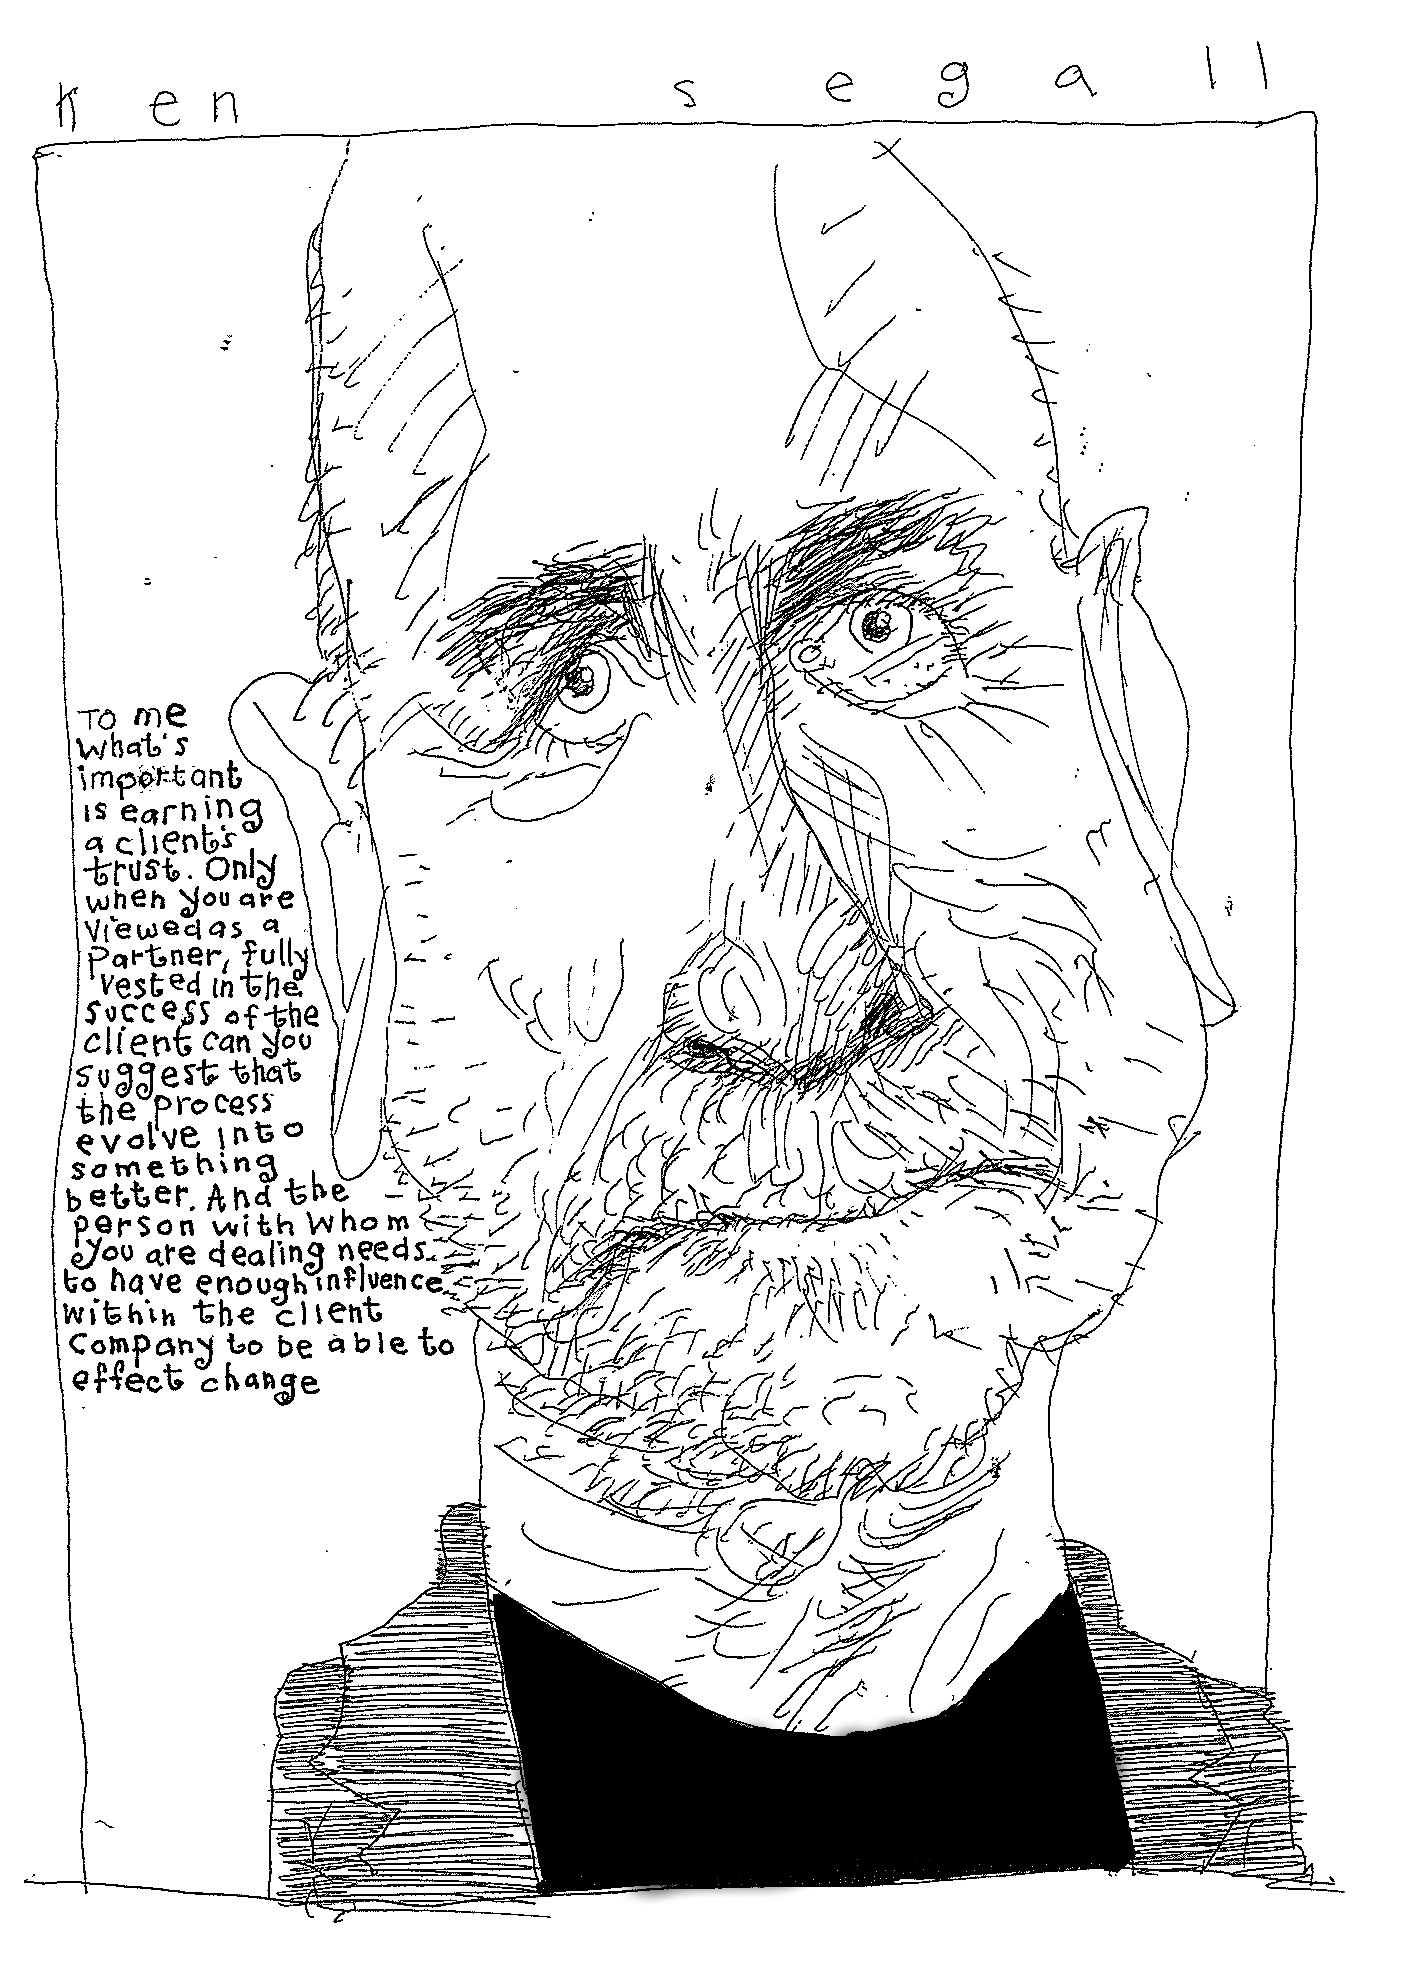 ken segall
To me
what's
important
is earning
a client's
trust. Only
when you are
viewed as a
partner, fully
vested in the
success of the
client can you
suggest that
the process
evolve into
something
better. And the
person with whom
you are dealing needs
to have enough influence
within the client
company to be able to
effect change